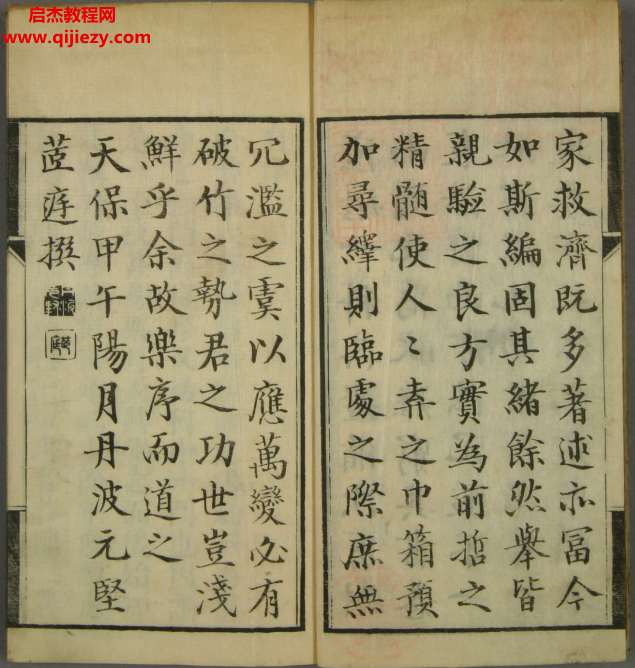 启杰教程网
www.qijiezy.com
家救濟既多著述亦冨今
如斯編固其緒餘然舉皆
親驗之良方實為前哲之
精髄使人〻弆之巾箱預
加尋繹則臨處之際庶無
冗濫之虞以應萬變必有
破竹之勢君之功世豈淺
鮮乎余故樂序而道之
天保甲午陽月丹波元堅
茝庭撰